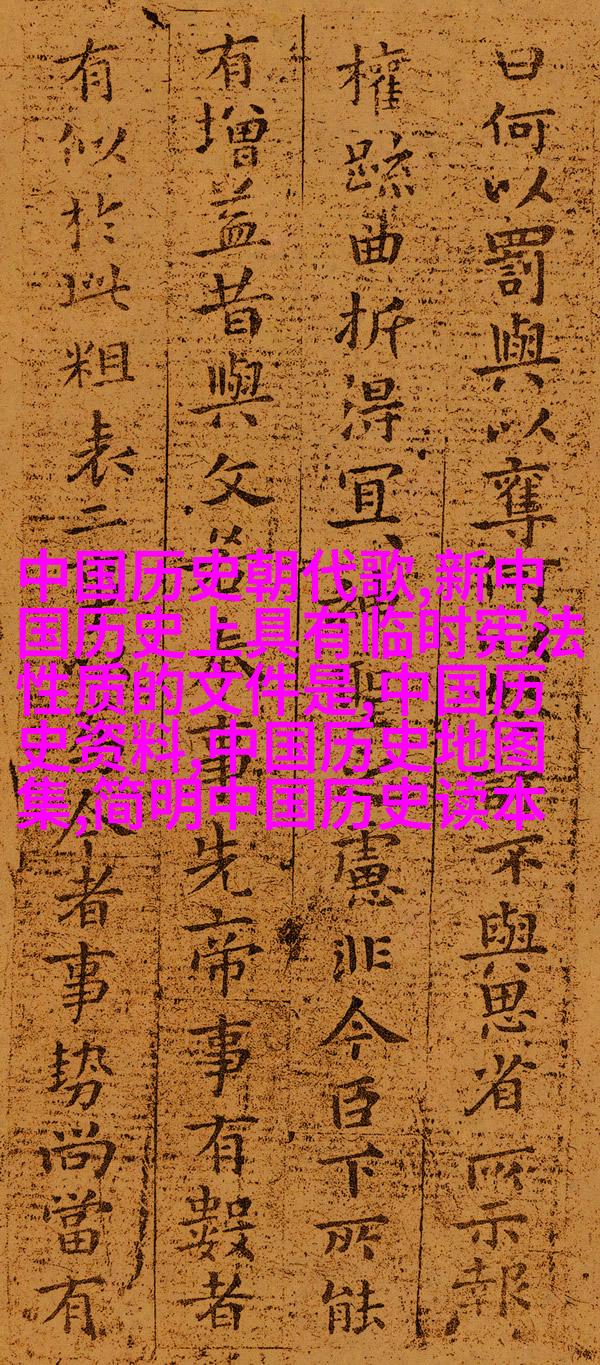 曰何以罰與以奪何不與思省所示報
權疏曲折得宜神聖慮非今臣下所能
有增益昔與文若奉事先帝事有數者
有似於此粗表二今者事勢尚當有
中国历史朝代歌,新中
国历史上具有临时宪法
性质的文件是,中国历
史资料,中国历史地图
集,简明中国历史读本